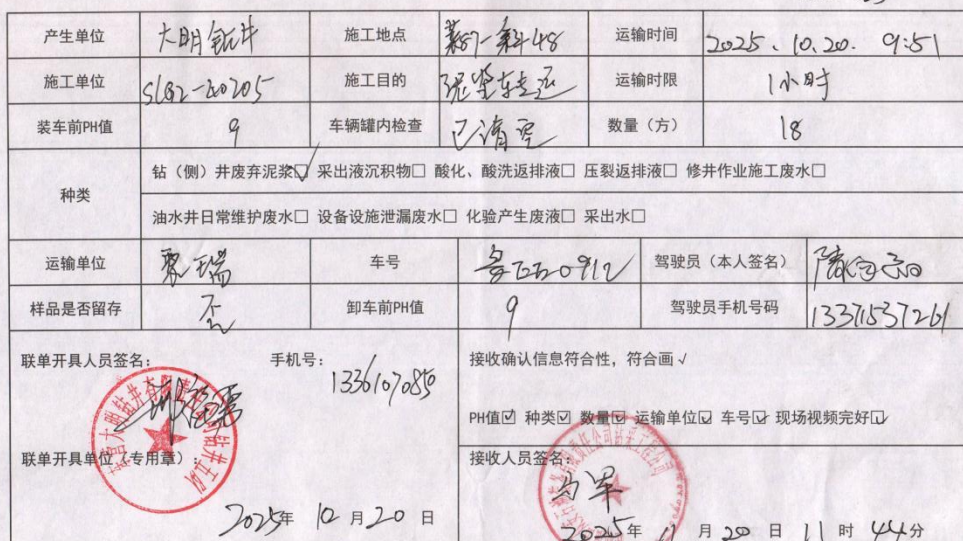 产生单位 大明钻井 施工地点 莱87-莱斜48 运输时间 2025.10.20. 9:51
施工单位 SLG2-20205 施工目的 泥浆转运 运输时限 1小时
装车前PH值 9 车辆罐内检查 已清空 数量（方） 18
种类 钻（侧）井废弃泥浆☑ 采出液沉积物□ 酸化、酸洗返排液□ 压裂返排液□ 修井作业施工废水□
油水井日常维护废水□ 设备设施泄漏废水□ 化验产生废液□ 采出水□
运输单位 车号 驾驶员（本人签名）
样品是否留存 否 卸车前PH值 9 驾驶员手机号码 13371537261
联单开具人员签名： 手机号： 13361070850
接收确认信息符合性，符合画√
PH值☑ 种类☑ 数量☑ 运输单位☑ 车号☑ 现场视频完好☑
联单开具单位（专用章）：
2025年 10月20日
接收人员签名：
2025年 11月20日 11时 44分